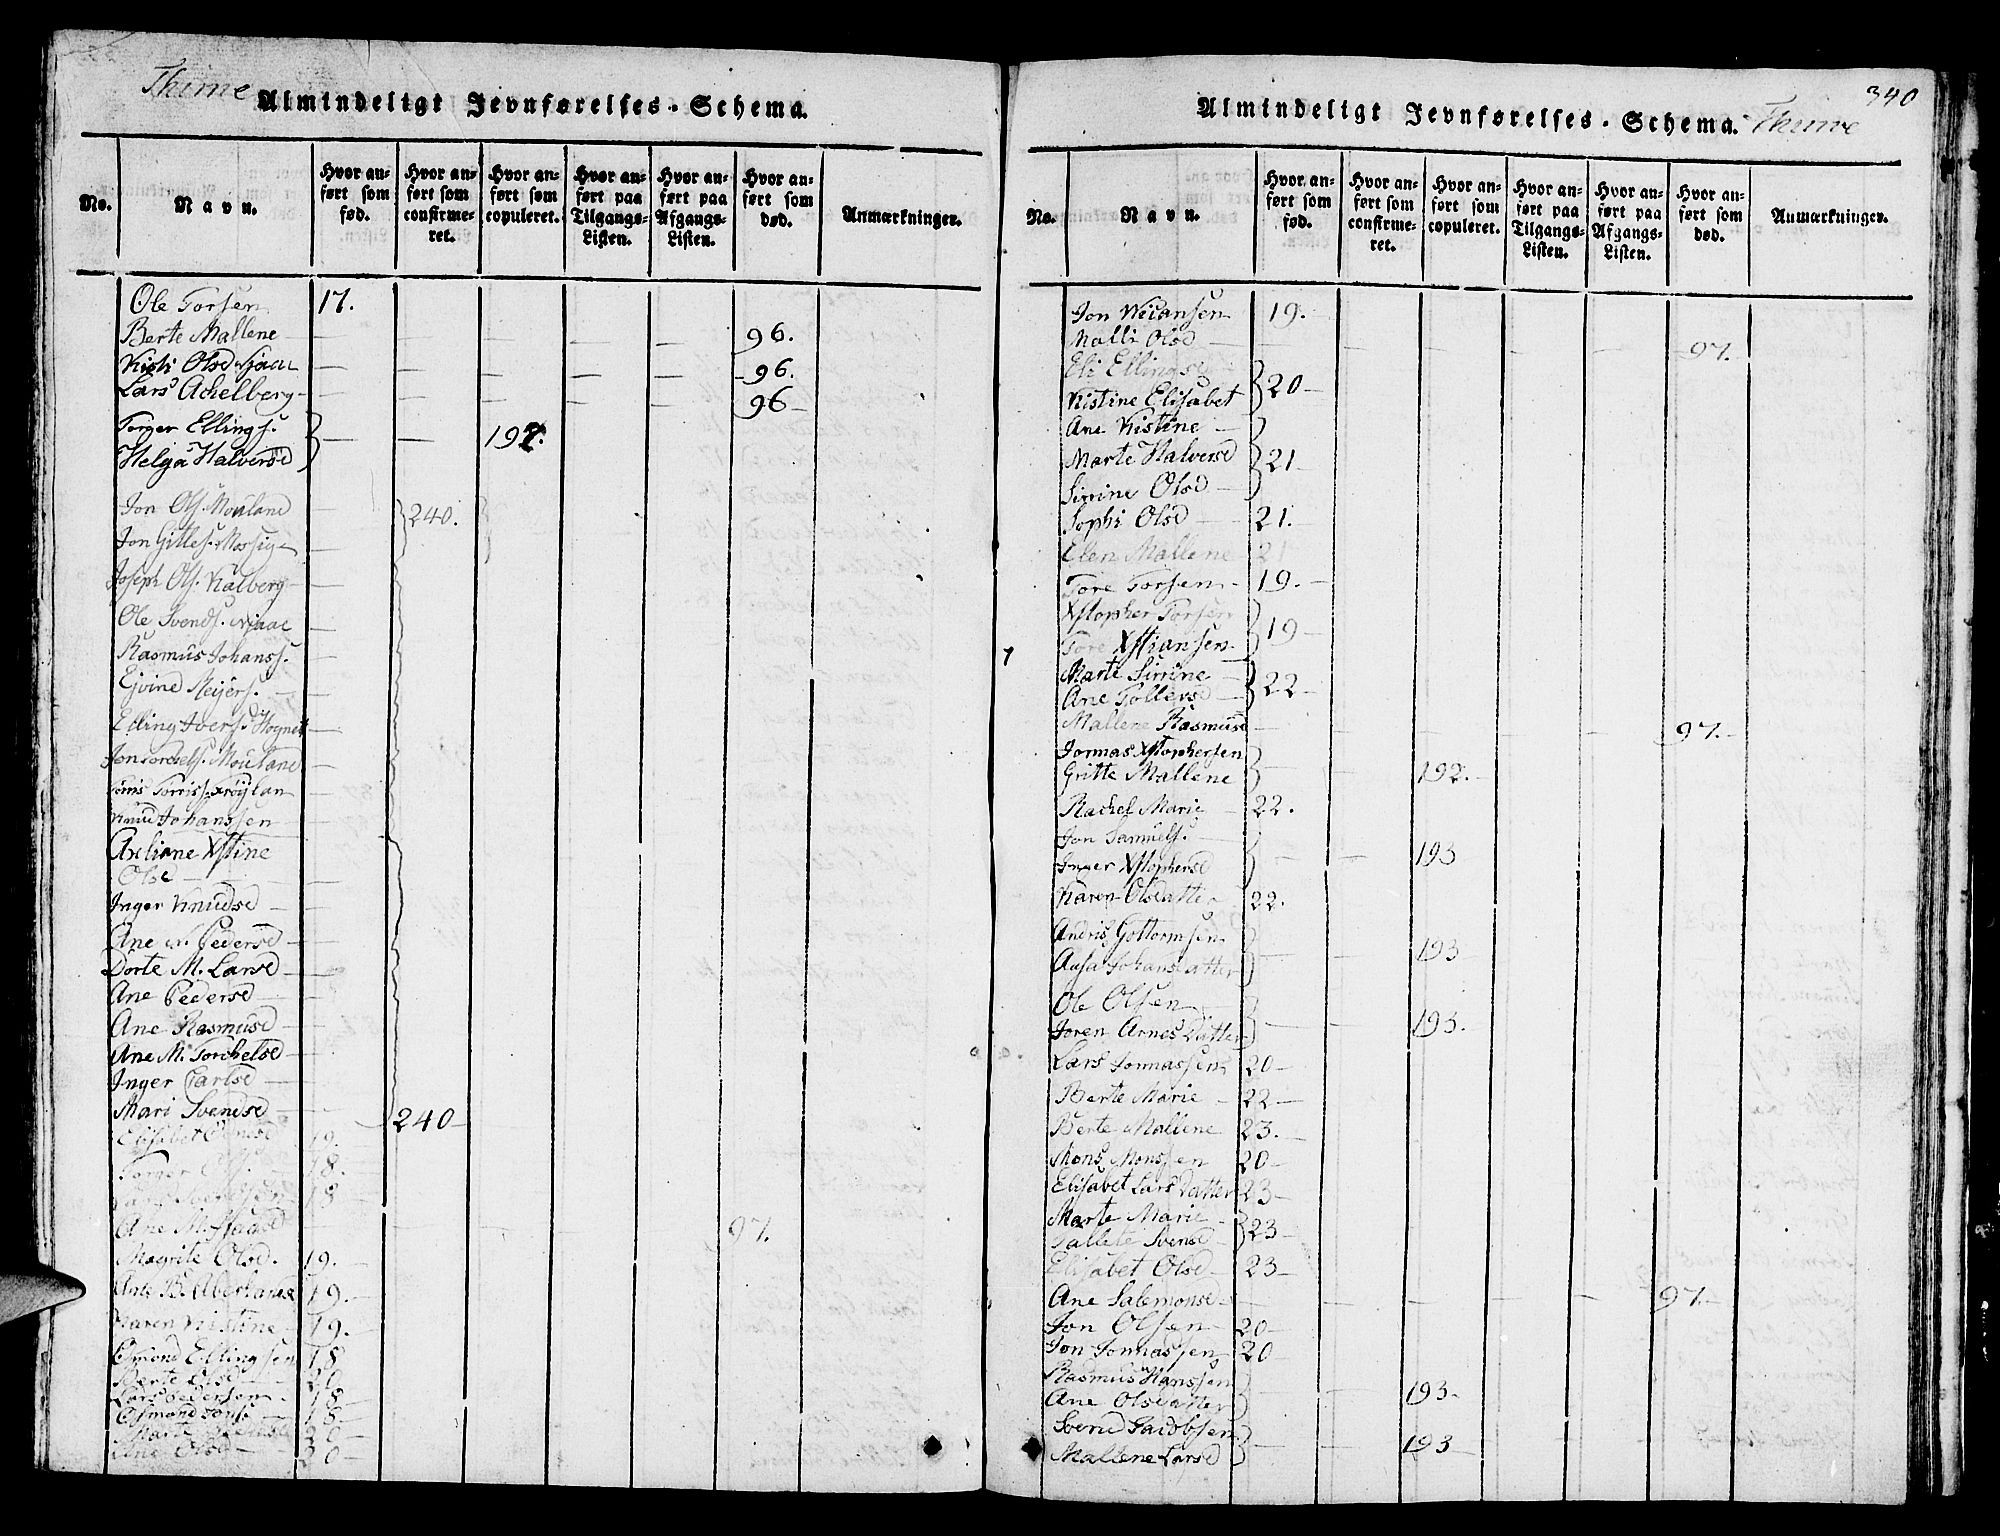 Thime Almindeligt Jevnførelses-Schema.
No.
Navn.
Hvor anført som fød.
Hvor anført som confirmeret.
Hvor anført som copuleret.
Hvor anført paa Tilgangs-Listen.
Hvor anført paa Afgangs-Listen.
Hvor anført som død.
Anmærkninger.
Ole Torsen 17.
Berte Mallene 96.
Kisti Olsd Njaa 96.
Lars Achelberg 96
Torger Ellings. 192.
Helga Halversd
Jon Ols. Moulane 240.
Jon Gitles. Mossige
Joseph Ols. Kalberg
Ole Svends. Njaae
Rasmus Johanss.
Ejvine Meijers.
Elling Ivers. Hognest
Jon Torchels. Moulane
Tønis Torriss. Frøylan
Knud Johanssen
Axliane Xstine
Olsd
Inger Knudsd
Ane M. Pedersd
Dorte M. Larsd
Ane Pedersd
Ane Rasmusd
Ane M. Torchelsd
Inger Carlsd
Mari Svendsd 240
Elisabet 19.
Torger Ols. 18.
Lars Svendsen 18
Ane M. 97.
Magrite Olsd. 19.
19.
Karen Kistine 19.
Osmond Ellingsen 18
Berte Olsd 20
Lars Pedersen 18
Osmond Jons. 18
Marte 20
Ane Olsd 30
340
Almindeligt Jevnførelses-Schema. Thime
No.
Navn.
Hvor anført som fød.
Hvor anført som confirmeret.
Hvor anført som copuleret.
Hvor anført paa Tilgangs-Listen.
Hvor anført paa Afgangs-Listen.
Hvor anført som død.
Anmærkninger.
Jon Kiiansen 19.
Malli Olsd 97.
Eli Ellingsd
Kistine Elisabet 20
Ane Kistine
Marte Halversd 21
Sirrine Olsd
Sophi Olsd 21.
Elen Mallene 21
Tore Torsen 19.
Xstopher Torsen
Tore Xstiansen 19
Marte Sirrine
Ane Tollevsd 22
Mallene Rasmusd 97.
Jonnas Xstophersen
Gritte Mallene 192.
Rachel Marie 22.
Jon Samuels.
Inger Xstophersd 193
Karen Olsdatter 22.
Andris Gottormsen
Aasa Johansdatter 193
Ole Olsen
Joren Arnes Datter 193.
Lars Jonnassen 20
Berte Marie 22
Berte Mallene 23.
Mons Monssen 20
Elisabet Lars Datter 23
Marte Marie
Tallete Svensd 23
Elisabet Olsd 23
Ane Salemonsd 97.
Jon Olsen 20
Jon Jonnassen 20
Rasmus Hanssen
Ane Olsdatter 193.
Svend Jacobsen
Mallene Larsd 193